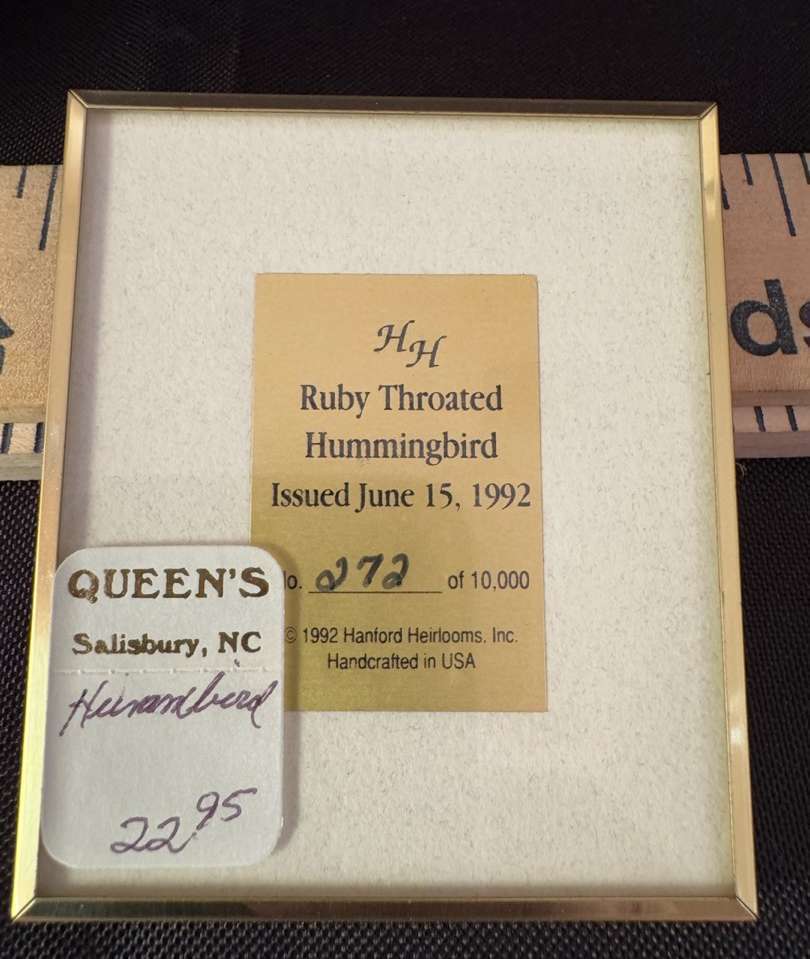 HH
Ruby Throated
Hummingbird
Issued June 15, 1992
No. 272 of 10,000
© 1992 Hanford Heirlooms, Inc.
Handcrafted in USA
QUEEN'S
Salisbury, NC
Hummbird
22.95
ds